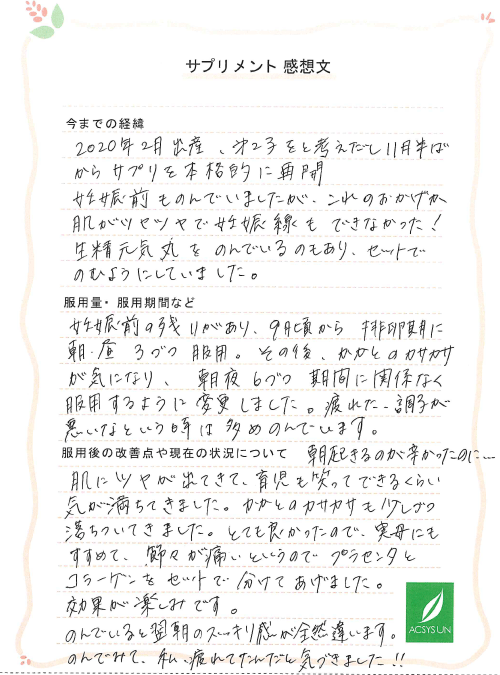 サプリメント 感想文
今までの経緯
2020年2月出産、第2子をと考えだし11月半ば
からサプリを本格的に再開
妊娠前ものんでいましたが、これのおかげか
肌がツヤツヤで妊娠線もできなかった!
生精元気丸をのんでいるのもあり、セットで
のむようにしていました。
服用量・服用期間など
妊娠前の残りがあり、9月頃から 排卵期に
朝・昼 3づつ 服用。その後、かかとのカサカサ
が気になり、 朝夜 6づつ 期間に関係なく
服用するように変更しました。疲れた、調子が
悪いなという時は多めのんでいます。
服用後の改善点や現在の状況について 朝起きるのが辛かったのに…
肌にツヤが出てきて、育児も笑ってできるくらい
気が満ちてきました。かかとのカサカサも少しづつ
落ちついてきました。とても良かったので、実母にも
すすめて、節々が痛いというのでプラセンタと
コラーゲンをセットで分けてあげました。
効果が楽しみです。
のんでいると翌朝のスッキリ感が全然違います。
のんでみて、私、疲れてたんだと気づきました!!
ACSYSUN